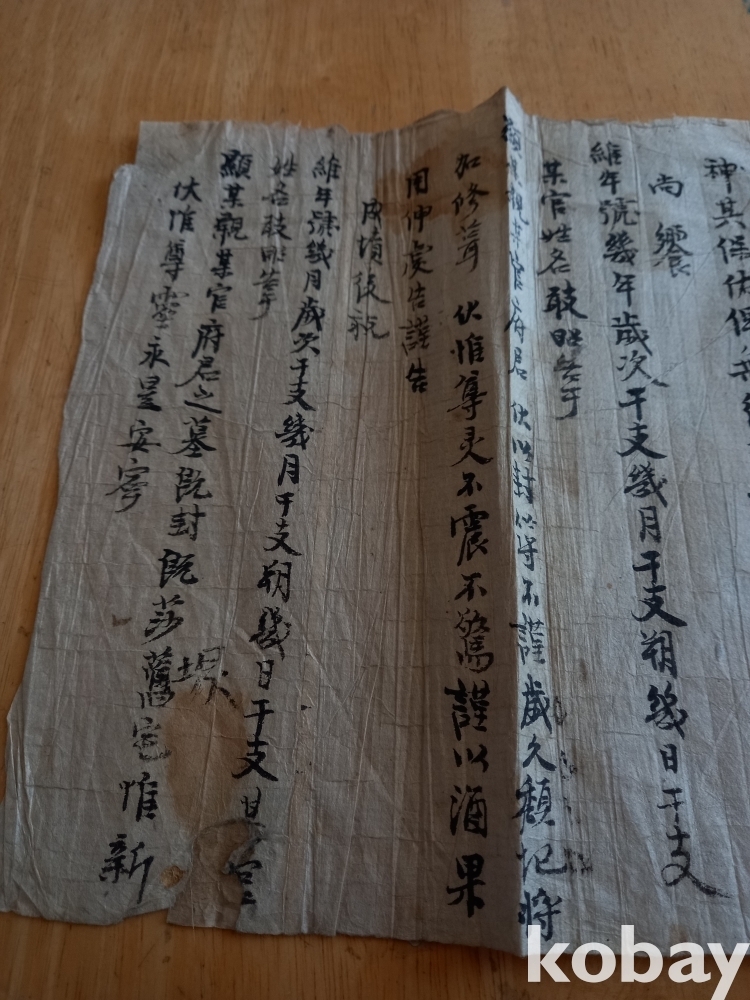 神其保佑俾無
尚饗
維年號幾年歲次干支幾月干支朔幾日干支
某官姓名敢昭告于
顯某親某官府君 伏以封 不謹歲久頹圮將
加修葺 伏惟尊灵不震不驚謹以酒果
用伸虔告謹告
成墳後祝
維年號幾月歲次干支幾月干支朔幾日干支某官
姓名敢昭告于
顯某親某官府君之墓既封既莎舊
伏惟尊靈永是安寧
宅惟新
kobay